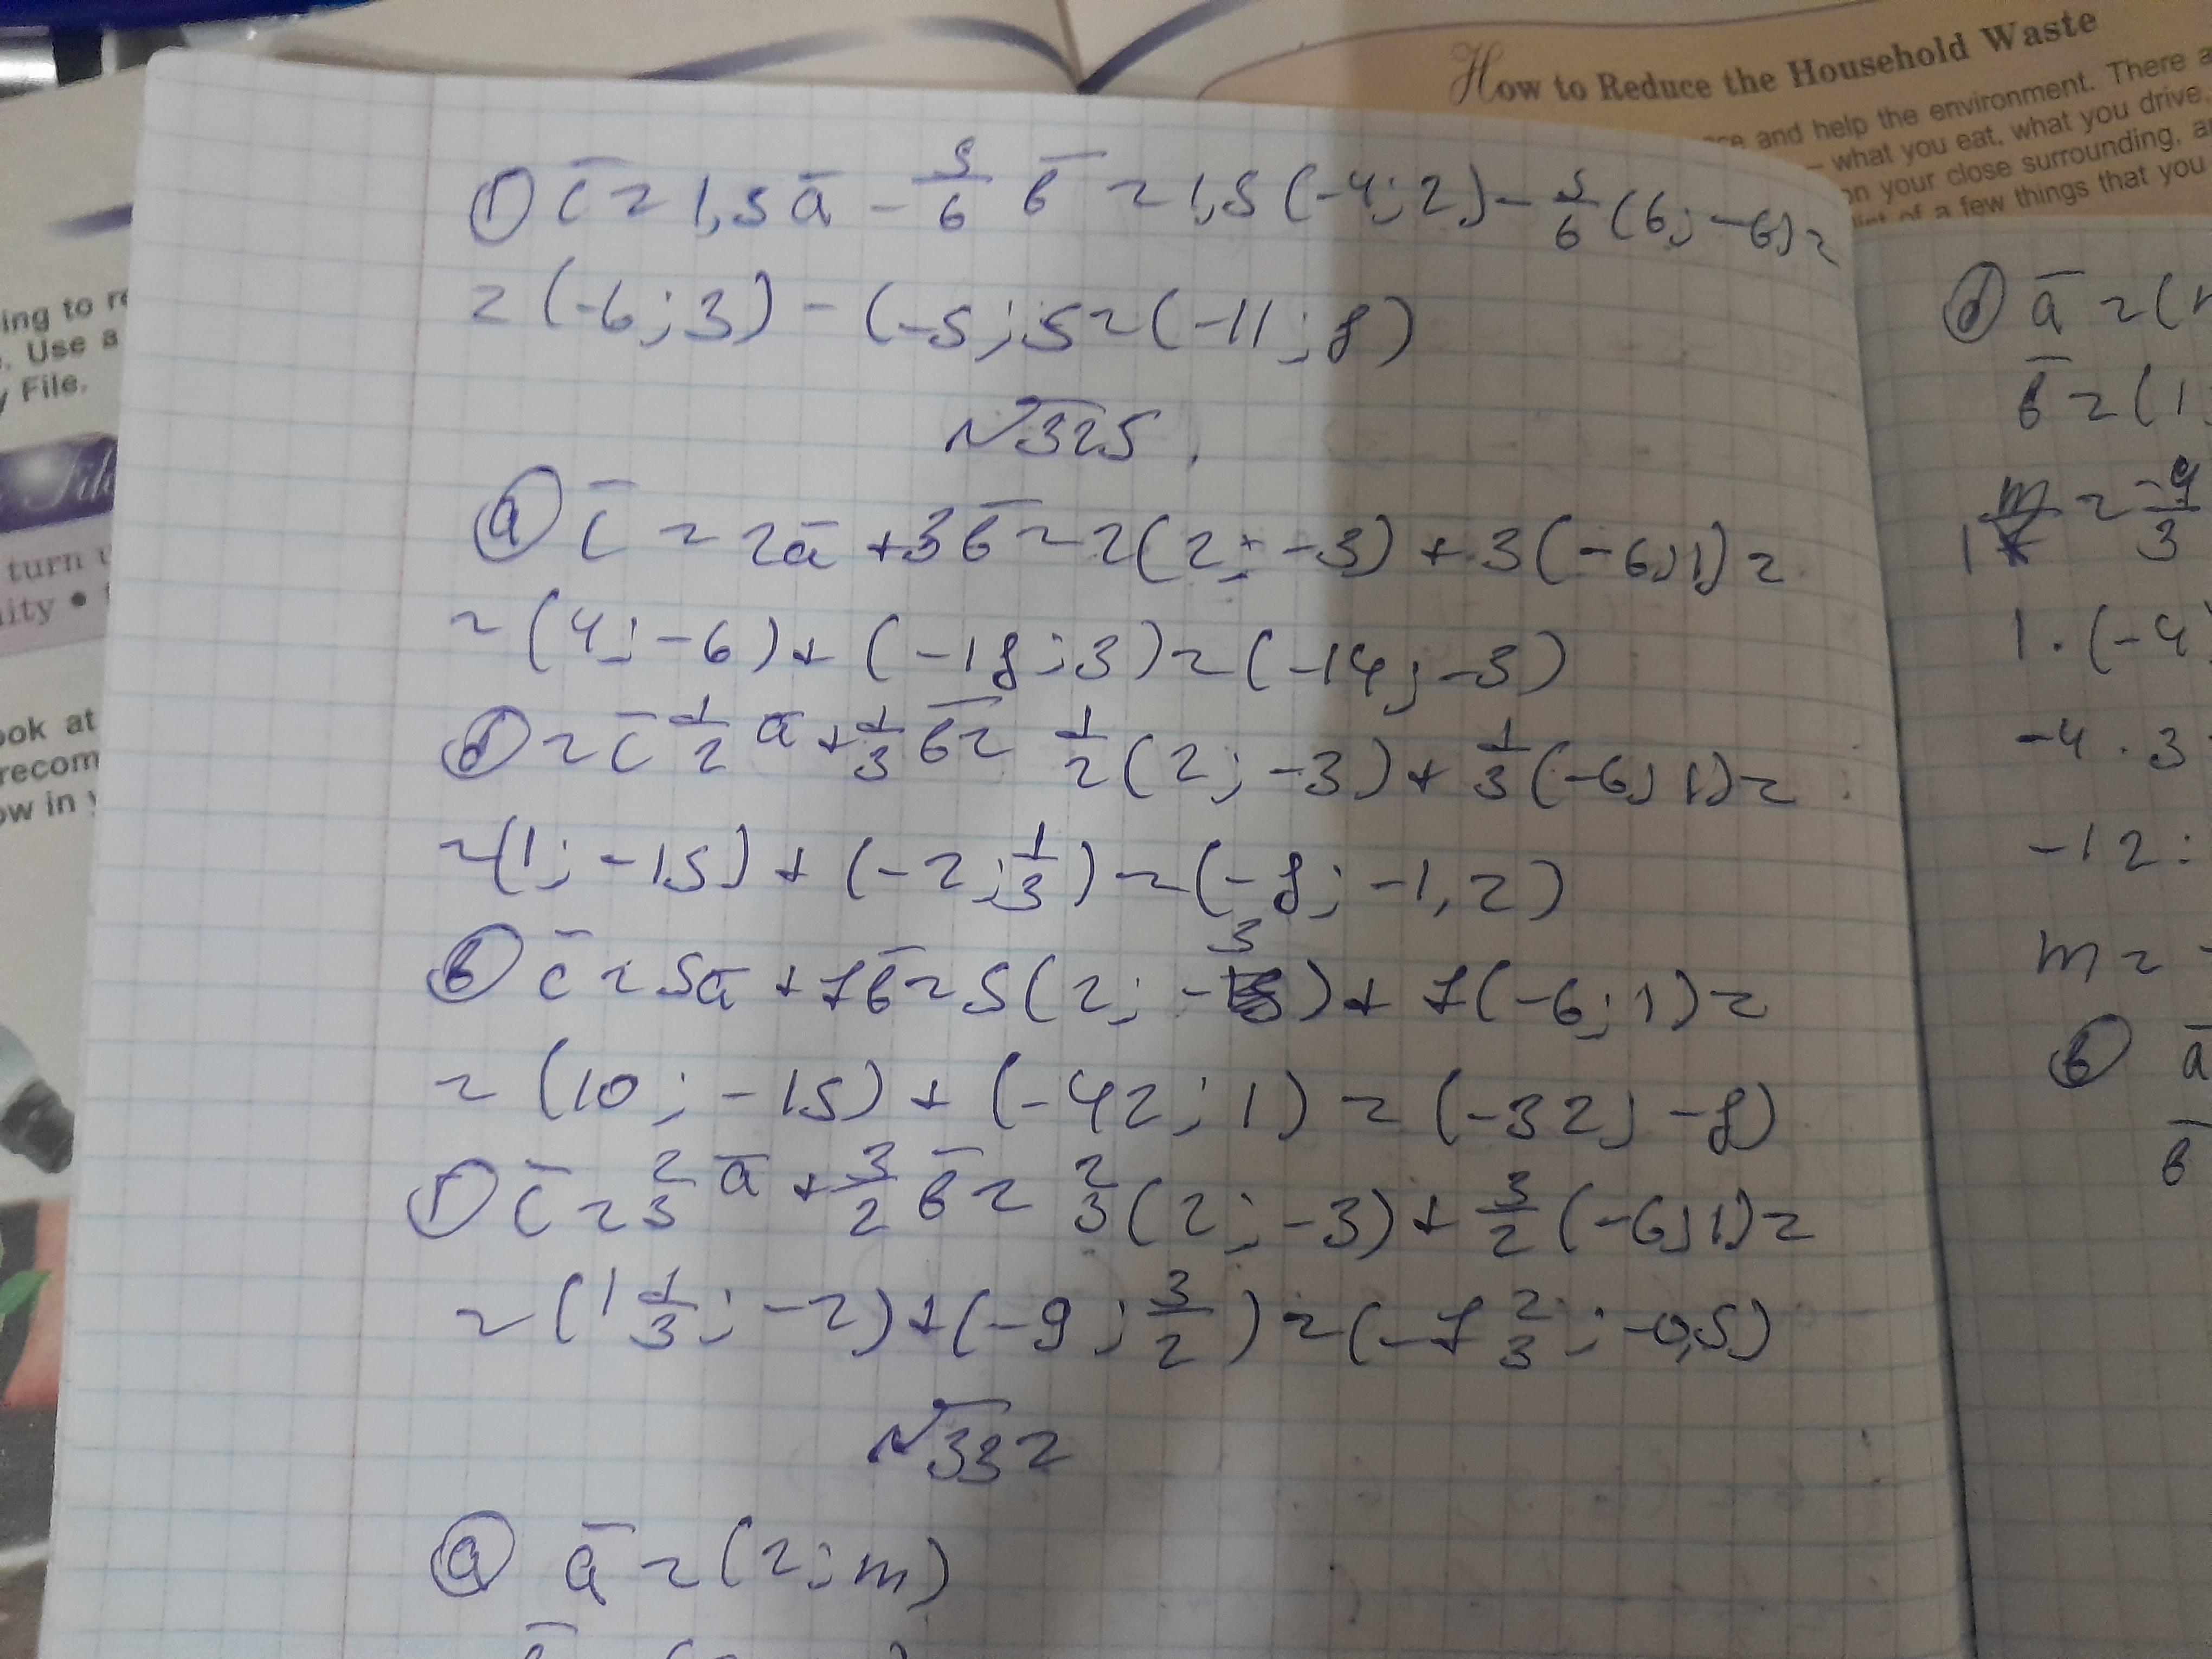 How to Reduce the Household Waste
and help the environment. There a
– what you eat, what you drive,
on your close surrounding, a
list of a few things that you
ing to re
. Use a
y File.
File
turn u
ity •
ook at
recom
ow in y
г) c̄ = 1,5ā − 5/6 в̄ = 1,5(-4; 2) − 5/6 (6; -6) =
= (-6; 3) − (-5; 5 = (-11; 8)
№325.
а) c̄ = 2ā + 3в̄ = 2(2; -3) + 3(-6; 1) =
= (4; -6) + (-18; 3) = (-14; -3)
б) = c̄ 1/2 ā + 1/3 в̄ = 1/2 (2; -3) + 1/3 (-6; 1) =
= (1; -1,5) + (-2; 1/3) = (-8; -1,2)
в) c̄ = 5ā + 7в̄ = 5(2; -3) + 7(-6; 1) =
= (10; -15) + (-42; 1) = (-32; -8)
г) c̄ = 2/3 ā + 3/2 в̄ = 2/3 (2; -3) + 3/2 (-6; 1) =
= (1 1/3; -2) + (-9; 3/2) = (-7 2/3; -0,5)
№332
а) ā = (2; m)
б) ā = (
в̄ = (1
m/1 = -4/3
1 · (-4)
-4 · 3
-12 :
m = -
в) ā
в̄